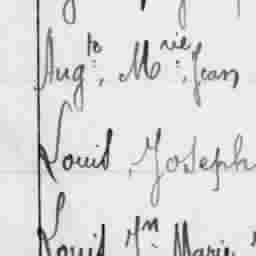 Augte, Mrie, Jean
Louis, Joseph
Louis Mn Marie